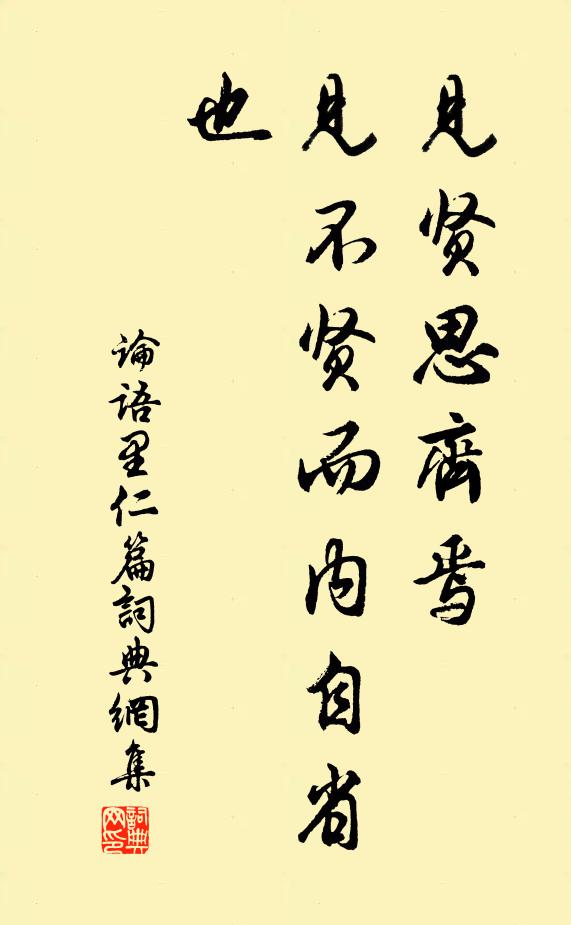 见贤思齊焉
见不贤而内自省
也
論語里仁篇詞典網集
詞典网印